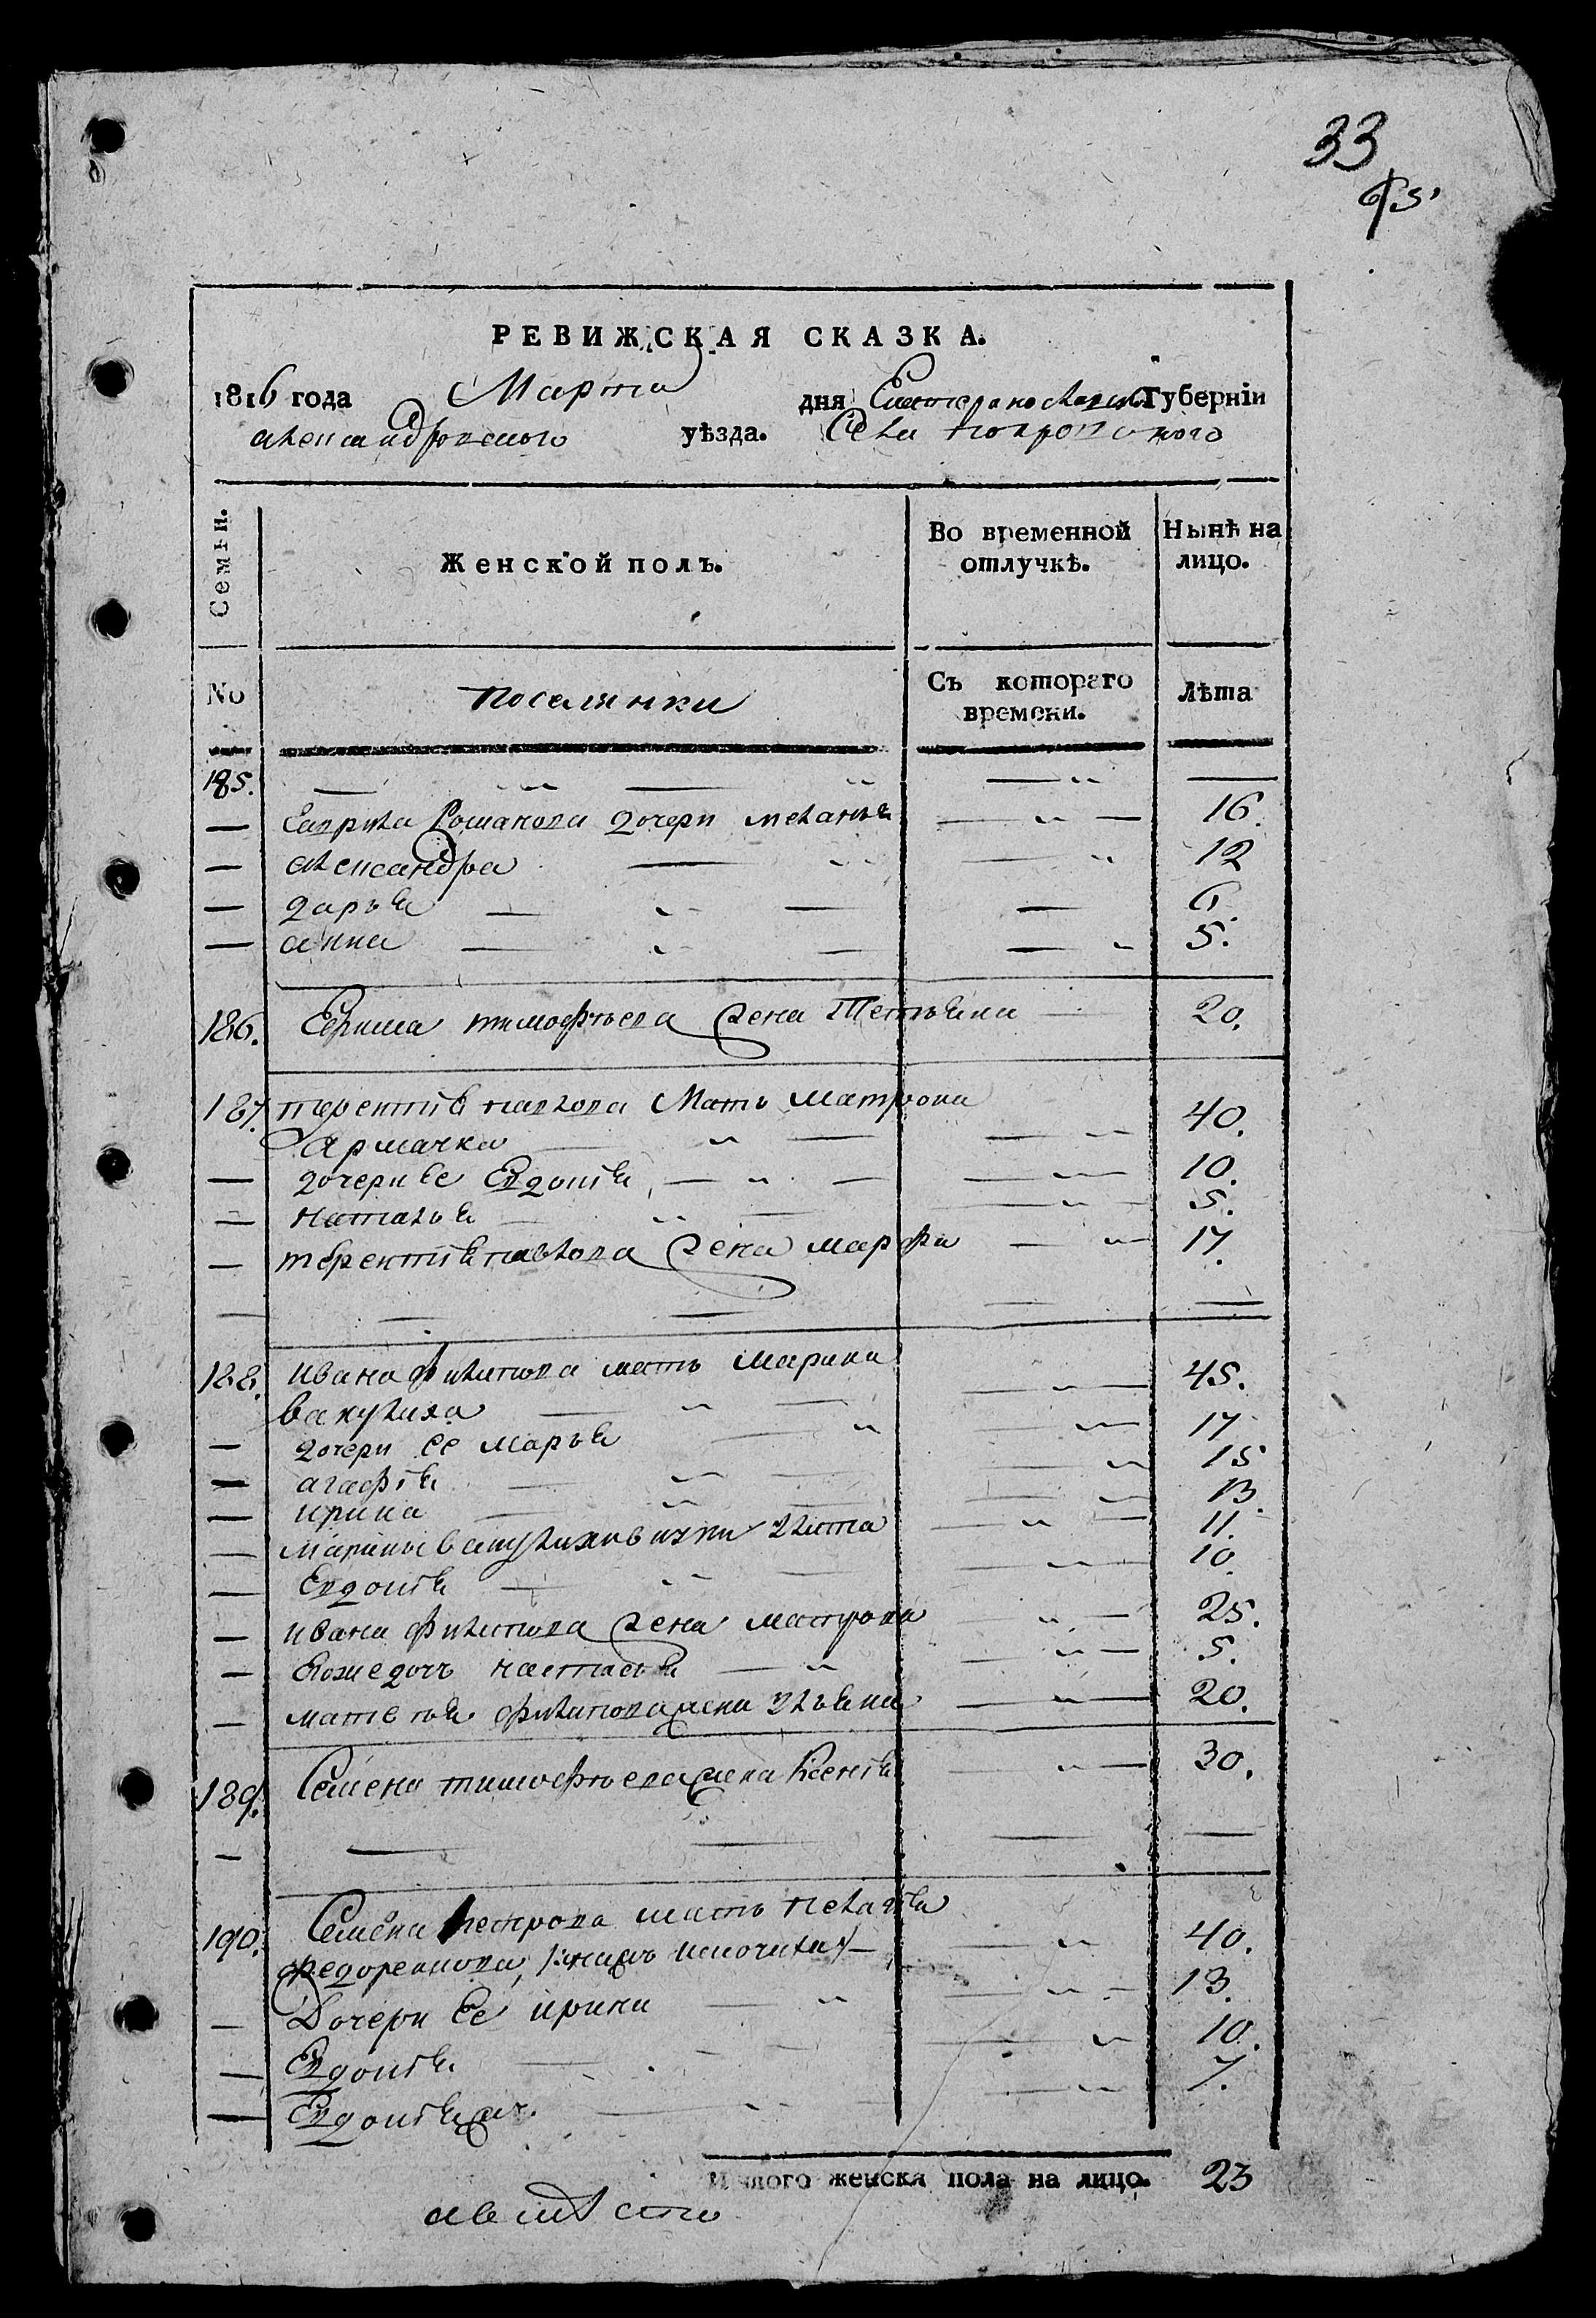 33
РЕВИЖСКАЯ СКАЗКА.
1816 года Марта дня Екатеринославской Губерніи
александровского уѣзда. Села покровского
Семьи. Женской полъ. Во временной отлучкѣ. Нынѣ на лицо.
No поселянки Съ котораго времени. Лѣта
185.
— Гаврила Романова дочери меланья 16.
— александра 12
— дарья 6.
— анна 5.
186. Ефима тимофѣева жена Татьяна 20.
187. терентія павлова Мать матрона
Ярмачка 40.
— дочери ее Евдокія 10.
— наталья 5.
— терентія павлова жена марфа 17.
188. ивана филипова мать марина
вакулиха 45.
— дочери ее марья 17
— агафія 15
— ирина 13
— марины вакулихи 11.
— Евдокія 10.
— ивана филипова жена матрона 25.
— дочь настасья 5.
— матвея филипова жена ульяна 20.
189. Семена тимофѣева жена Ксенія 30.
190. Семена петрова мать пелагія 40.
— Дочери Ее ирина 13.
— Евдокія 10.
— Евдокія 7.
Итого женска пола на лицо. 23